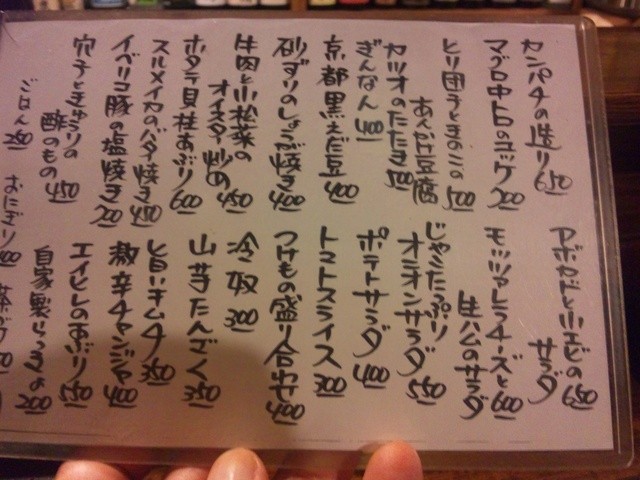 カンパチの造り 650
マグロ中トロのユッケ 700
とり団子ときのこの
あんかけ豆腐 500
カツオのたたき 500
ぎんなん 400
京都黒えだ豆 400
砂ずりのしょうが焼き 400
牛肉と小松菜の
オイスター炒め 450
ホタテ貝柱あぶり 600
スルメイカのバター焼き 450
イベリコ豚の塩焼き 700
穴子ときゅうりの
酢のもの 450
ごはん 250
おにぎり 400
アボカドと小エビの
サラダ 650
モッツァレラチーズと
生ハムのサラダ 600
じゃこたっぷり
オニオンサラダ 550
ポテトサラダ 400
トマトスライス 300
つけもの盛り合わせ 400
冷奴 300
山芋たんざく 350
旨いキムチ 350
激辛チャンジャ 400
エイヒレのあぶり 550
自家製らっきょ 200